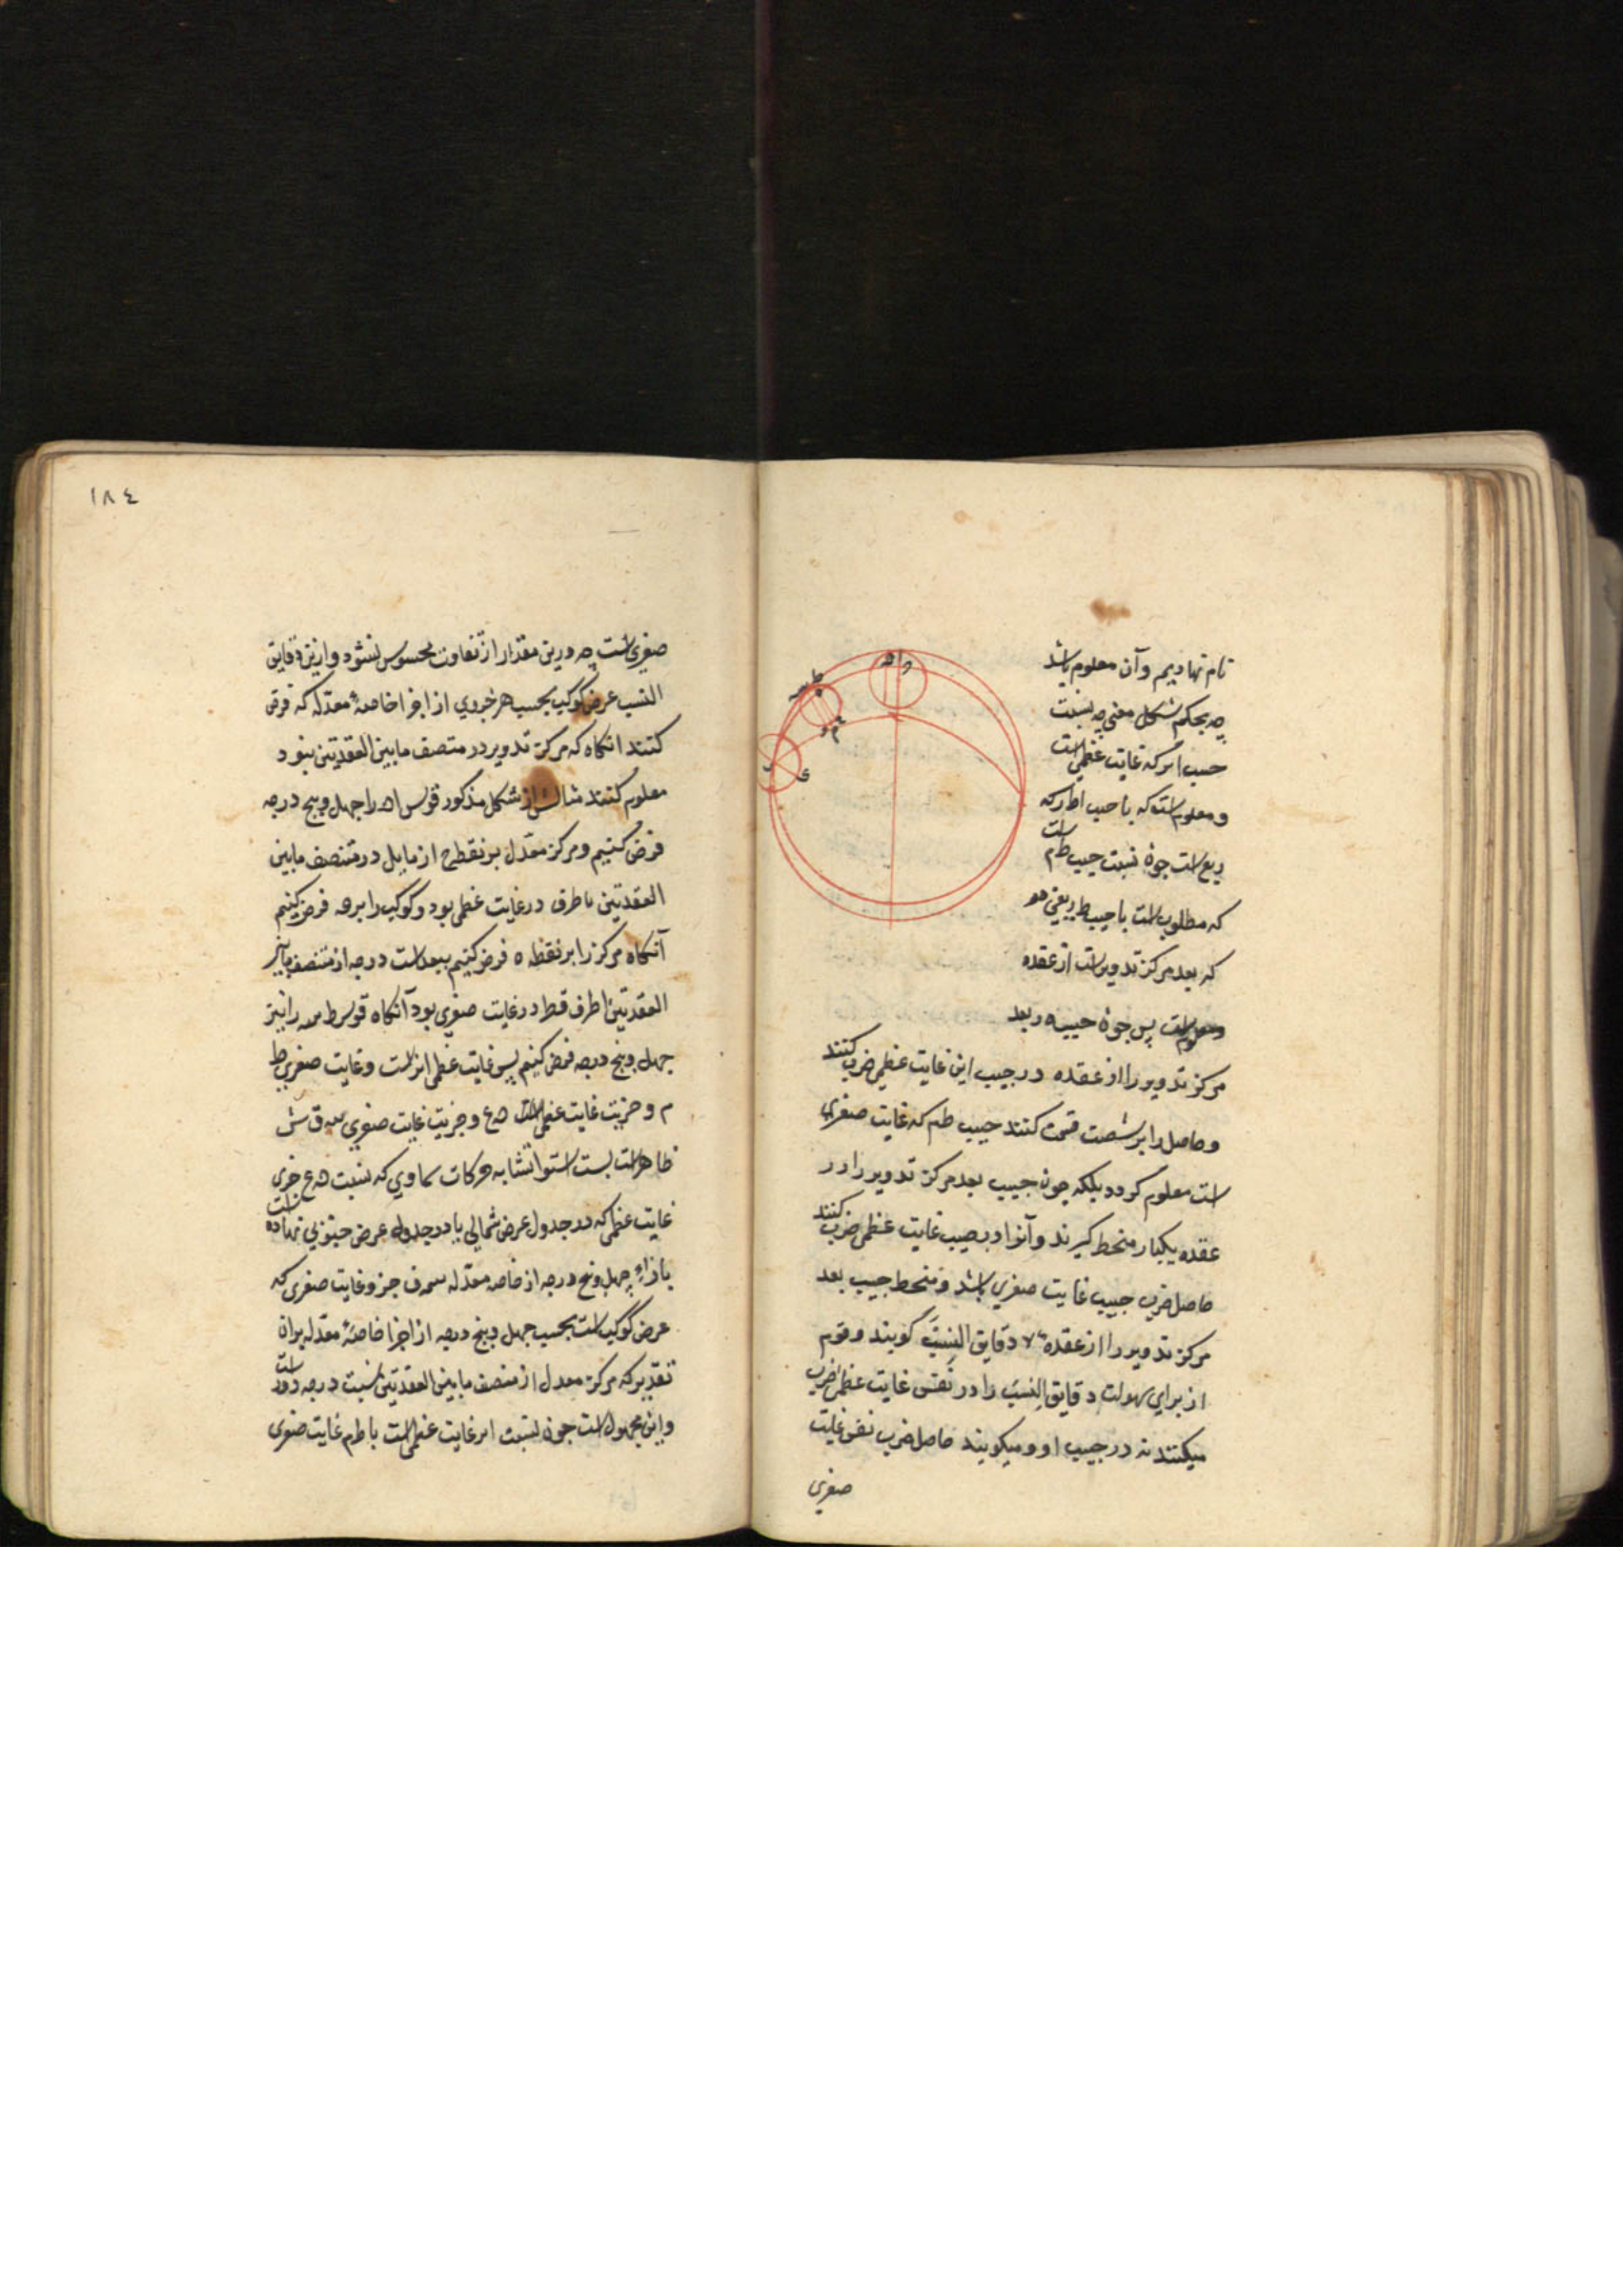 نام نهاديم وآن معلوم باشد
چه بحكم شكل مغني چه نسبت
جيب اىر كه غايت عظمي است
ومعلوم است كه با جيب اط ركه
ربع است چون نسبت جيب طم است
كه مطلوب است با جيب ط ر يعني
كه بعد مركز تدوير است از عقده
معلوم است پس چون جيب بعد
مركز تدوير را از عقده در جيب اين غايت عظمي ضرب كنند
وحاصل را بر شصت قسمت كنند جيب طم كه غايت صغري
است معلوم كردد بلكه چون جيب بعد مركز تدوير را از
عقده يكبار منحط كيرند وآنرا در جيب غايت عظمي ضرب كنند
حاصل ضرب جيب غايت صغري باشد ومنحط جيب بعد
مركز تدوير را از عقده دقايق النسب كويند وقوم
از براي سهولت دقايق النسب را در نفس غايت عظمي ضرب
ميكنند نه در جيب او وميكويند حاصل ضرب نفس غايت
صغري
١٨٤
صغري است چه درين مقدار از تفاوت محسوس نشود وازين دقايق
النسب عرض كوكب بحسب هر جزوي از اجزا خاصهٔ معدله كه فرض
كنند انكاه كه مركز تدوير در منتصف مابين العقدتين بنود
معلوم كنند مثالش از شكل مذكور قوس اه را چهل وپنج درجه
فرض كنيم ومركز معدل بر نقطه ح از مايل در منتصف مابين
العقدتين با طرف در غايت عظمي بود وكوكب را بر ه فرض كنيم
آنكاه مركز را بر نقطه ه فرض كنيم ببعد است درجه از منتصف مابين
العقدتين اطرف قطر در غايت صغري بود آنكاه قوس ط سه را نيز
چهل وپنج درجه فرض كنيم پس غايت عظمي ابر است وغايت صغري ط
م وجزيت غايت عظمي است ه ع وجزيت غايت صغري سه ق ش
ظاهر است بسبب استوا تشابه حركات سماوي كه نسبت ه ع جزي
غايت عظمي كه در جدول عرض شمالي يا در جدول عرض جنوبي نهاده است
بازاء چهل وپنج درجه از خاصه معدله سه ف جزو غايت صغري كه
عرض كوكب است بحسب چهل وپنج درجه از اجزا خاصهٔ معدله بران
تقدير كه مركز معدل از منتصف مابين العقدتين بيست درجه دور است
واين مجهول است چون نسبت ابر غايت عظمي است با طم غايت صغري